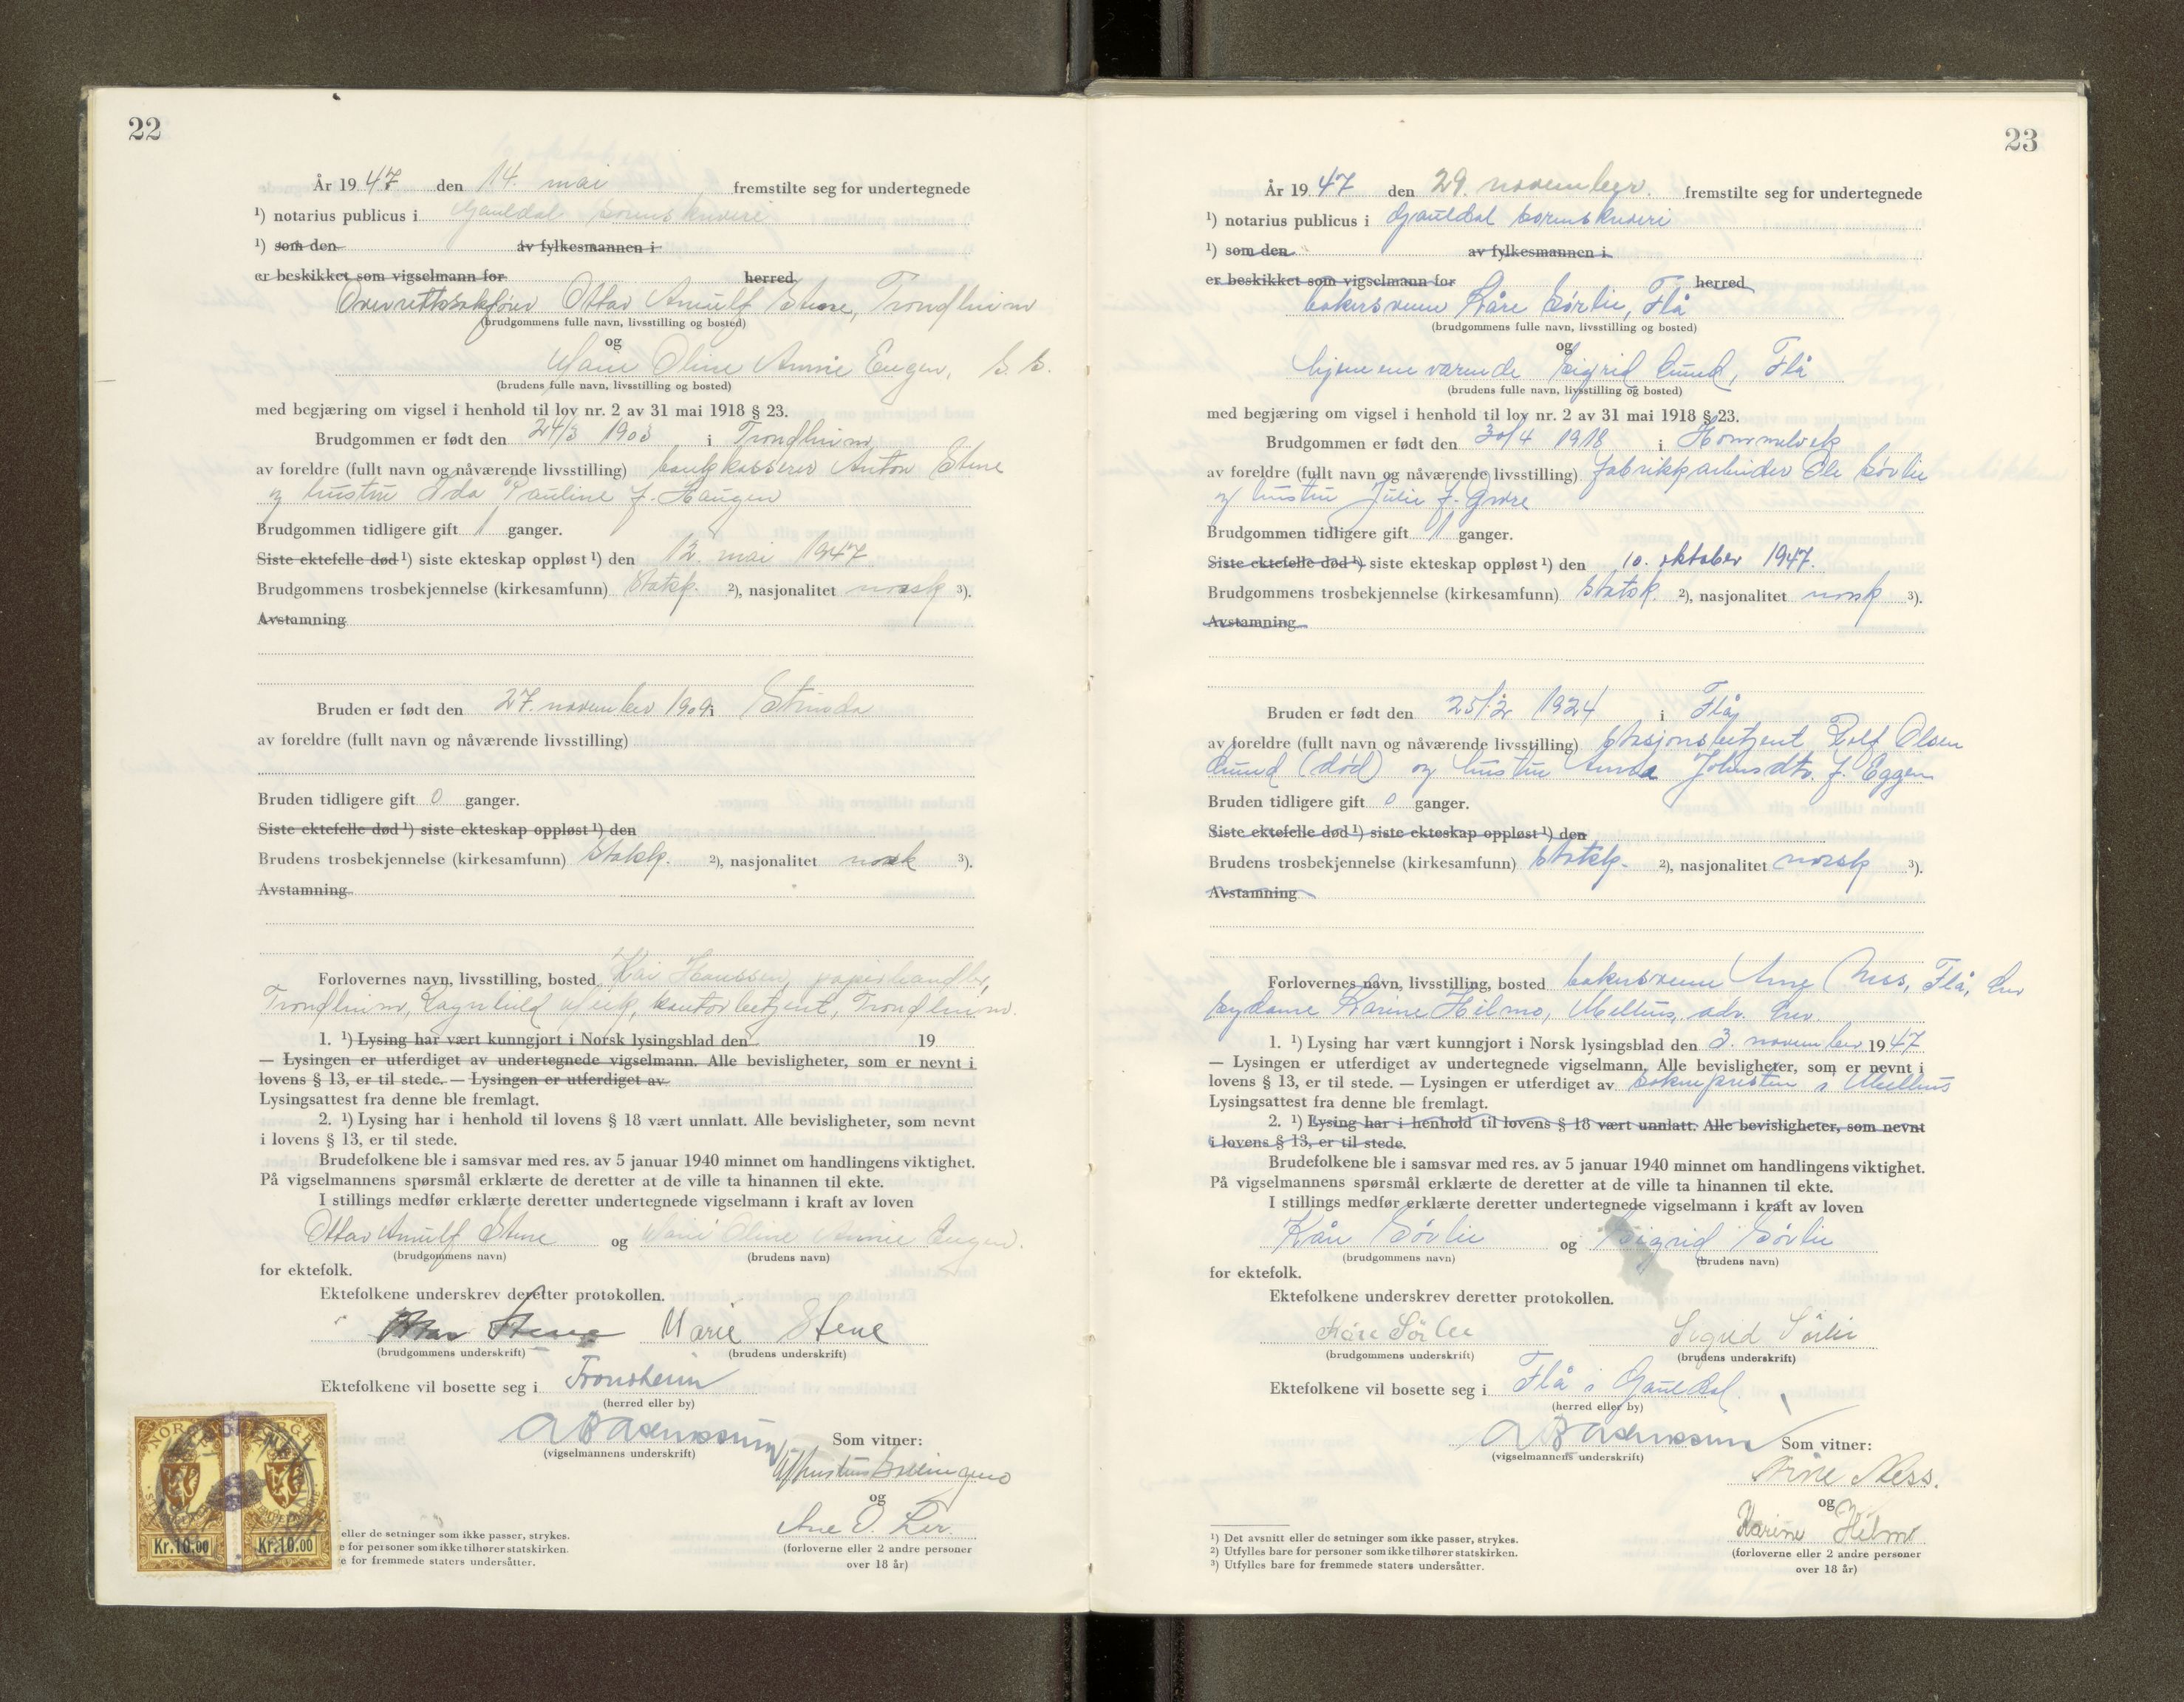 22
År 1947 den 14. mai fremstilte seg for undertegnede
¹) notarius publicus i Gauldal sorenskriveri
¹) som den av fylkesmannen i
er beskikket som vigselmann for herred
Overrettssakfører Ottar Arnulf Stene, Trondheim
(brudgommens fulle navn, livsstilling og bosted)
og
Marie Oline Annie Eugen, s. s.
(brudens fulle navn, livsstilling og bosted)
med begjæring om vigsel i henhold til lov nr. 2 av 31 mai 1918 § 23.
Brudgommen er født den 24/3 1903 i Trondheim
av foreldre (fullt navn og nåværende livsstilling) bankkasserer Anton Stene
og hustru Ida Pauline f. Haugen
Brudgommen tidligere gift 1 ganger.
Siste ektefelle død ¹) siste ekteskap oppløst ¹) den 12. mai 1947
Brudgommens trosbekjennelse (kirkesamfunn) Statsk. ²), nasjonalitet norsk ³).
Avstamning
Bruden er født den 27. november 1909 i Strinda
av foreldre (fullt navn og nåværende livsstilling)
Bruden tidligere gift 0 ganger.
Siste ektefelle død ¹) siste ekteskap oppløst ¹) den
Brudens trosbekjennelse (kirkesamfunn) Statsk. ²), nasjonalitet norsk ³).
Avstamning
Forlovernes navn, livsstilling, bosted Kai Hanssen, papirhandler,
Trondheim, Ragnhild kontorbetjent, Trondheim.
1. ¹) Lysing har vært kunngjort i Norsk lysingsblad den 19
— Lysingen er utferdiget av undertegnede vigselmann. Alle bevisligheter, som er nevnt i
lovens § 13, er til stede. — Lysingen er utferdiget av
Lysingsattest fra denne ble fremlagt.
2. ¹) Lysing har i henhold til lovens § 18 vært unnlatt. Alle bevisligheter, som nevnt
i lovens § 13, er til stede.
Brudefolkene ble i samsvar med res. av 5 januar 1940 minnet om handlingens viktighet.
På vigselmannens spørsmål erklærte de deretter at de ville ta hinannen til ekte.
I stillings medfør erklærte deretter undertegnede vigselmann i kraft av loven
Ottar Arnulf Stene og Marie Oline Annie Eugen.
(brudgommens navn) (brudens navn)
for ektefolk.
Ektefolkene underskrev deretter protokollen.
Ottar Stene Marie Stene
(brudgommens underskrift) (brudens underskrift)
Ektefolkene vil bosette seg i Trondheim
(herred eller by)
(vigselmannens underskrift) Som vitner:
og
Ane O. Ler
(forloverne eller 2 andre personer
over 18 år)
NORGE NORGE
Kr.10.00 Kr.10.00
eller de setninger som ikke passer, strykes.
e for personer som ikke tilhører statskirken.
e for fremmede staters undersåtter.
23
År 1947 den 29. november. fremstilte seg for undertegnede
¹) notarius publicus i Gauldal sorenskriveri
¹) som den av fylkesmannen i
er beskikket som vigselmann for herred
bakersvenn Kåre Sørlie, Flå
(brudgommens fulle navn, livsstilling og bosted)
og
hjemmeværende Sigrid Lund, Flå
(brudens fulle navn, livsstilling og bosted)
med begjæring om vigsel i henhold til lov nr. 2 av 31 mai 1918 § 23.
Brudgommen er født den 30/4 1918 i Hommelvik
av foreldre (fullt navn og nåværende livsstilling) fabrikkarbeider Ole Sørlie
og hustru Julie f. Grøre
Brudgommen tidligere gift 1 ganger.
Siste ektefelle død ¹) siste ekteskap oppløst ¹) den 10. oktober 1947.
Brudgommens trosbekjennelse (kirkesamfunn) Statsk. ²), nasjonalitet norsk ³).
Avstamning
Bruden er født den 25/2 1924 i Flå
av foreldre (fullt navn og nåværende livsstilling) stasjonsbetjent Rolf Olsen
Lund (død) og hustru Anna Johnsdtr. f. Eggen
Bruden tidligere gift 0 ganger.
Siste ektefelle død ¹) siste ekteskap oppløst ¹) den
Brudens trosbekjennelse (kirkesamfunn) Statsk. ²), nasjonalitet norsk ³).
Avstamning
Forlovernes navn, livsstilling, bosted bakersvenn Arne Ness, Flå,
sydame Karine Hilmo, Melhus,
1. ¹) Lysing har vært kunngjort i Norsk lysingsblad den 3. november 1947
— Lysingen er utferdiget av undertegnede vigselmann. Alle bevisligheter, som er nevnt i
lovens § 13, er til stede. — Lysingen er utferdiget av soknepresten i Melhus
Lysingsattest fra denne ble fremlagt.
2. ¹) Lysing har i henhold til lovens § 18 vært unnlatt. Alle bevisligheter, som nevnt
i lovens § 13, er til stede.
Brudefolkene ble i samsvar med res. av 5 januar 1940 minnet om handlingens viktighet.
På vigselmannens spørsmål erklærte de deretter at de ville ta hinannen til ekte.
I stillings medfør erklærte deretter undertegnede vigselmann i kraft av loven
Kåre Sørlie og Sigrid Sørlie
(brudgommens navn) (brudens navn)
for ektefolk.
Ektefolkene underskrev deretter protokollen.
Kåre Sørlie Sigrid Sørlie
(brudgommens underskrift) (brudens underskrift)
Ektefolkene vil bosette seg i Flå i Gauldal.
(herred eller by)
(vigselmannens underskrift) Som vitner:
Arne Ness.
og
Karine Hilmo
(forloverne eller 2 andre personer
over 18 år)
¹) Det avsnitt eller de setninger som ikke passer, strykes.
²) Utfylles bare for personer som ikke tilhører statskirken.
³) Utfylles bare for fremmede staters undersåtter.